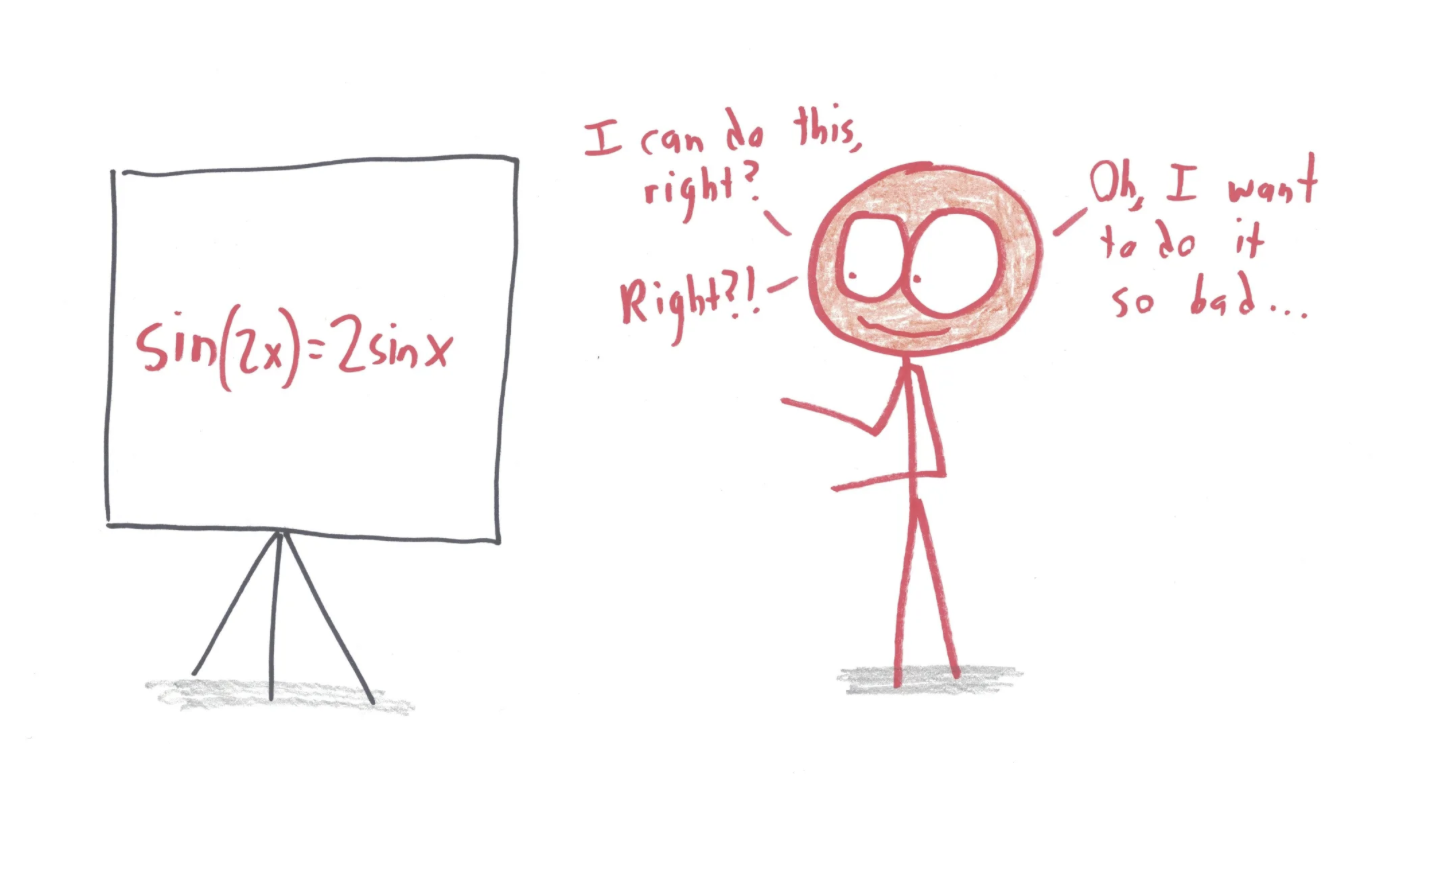 sin(2x)=2sinx
I can do this,
right?
Right?!
Oh, I want
to do it
so bad...